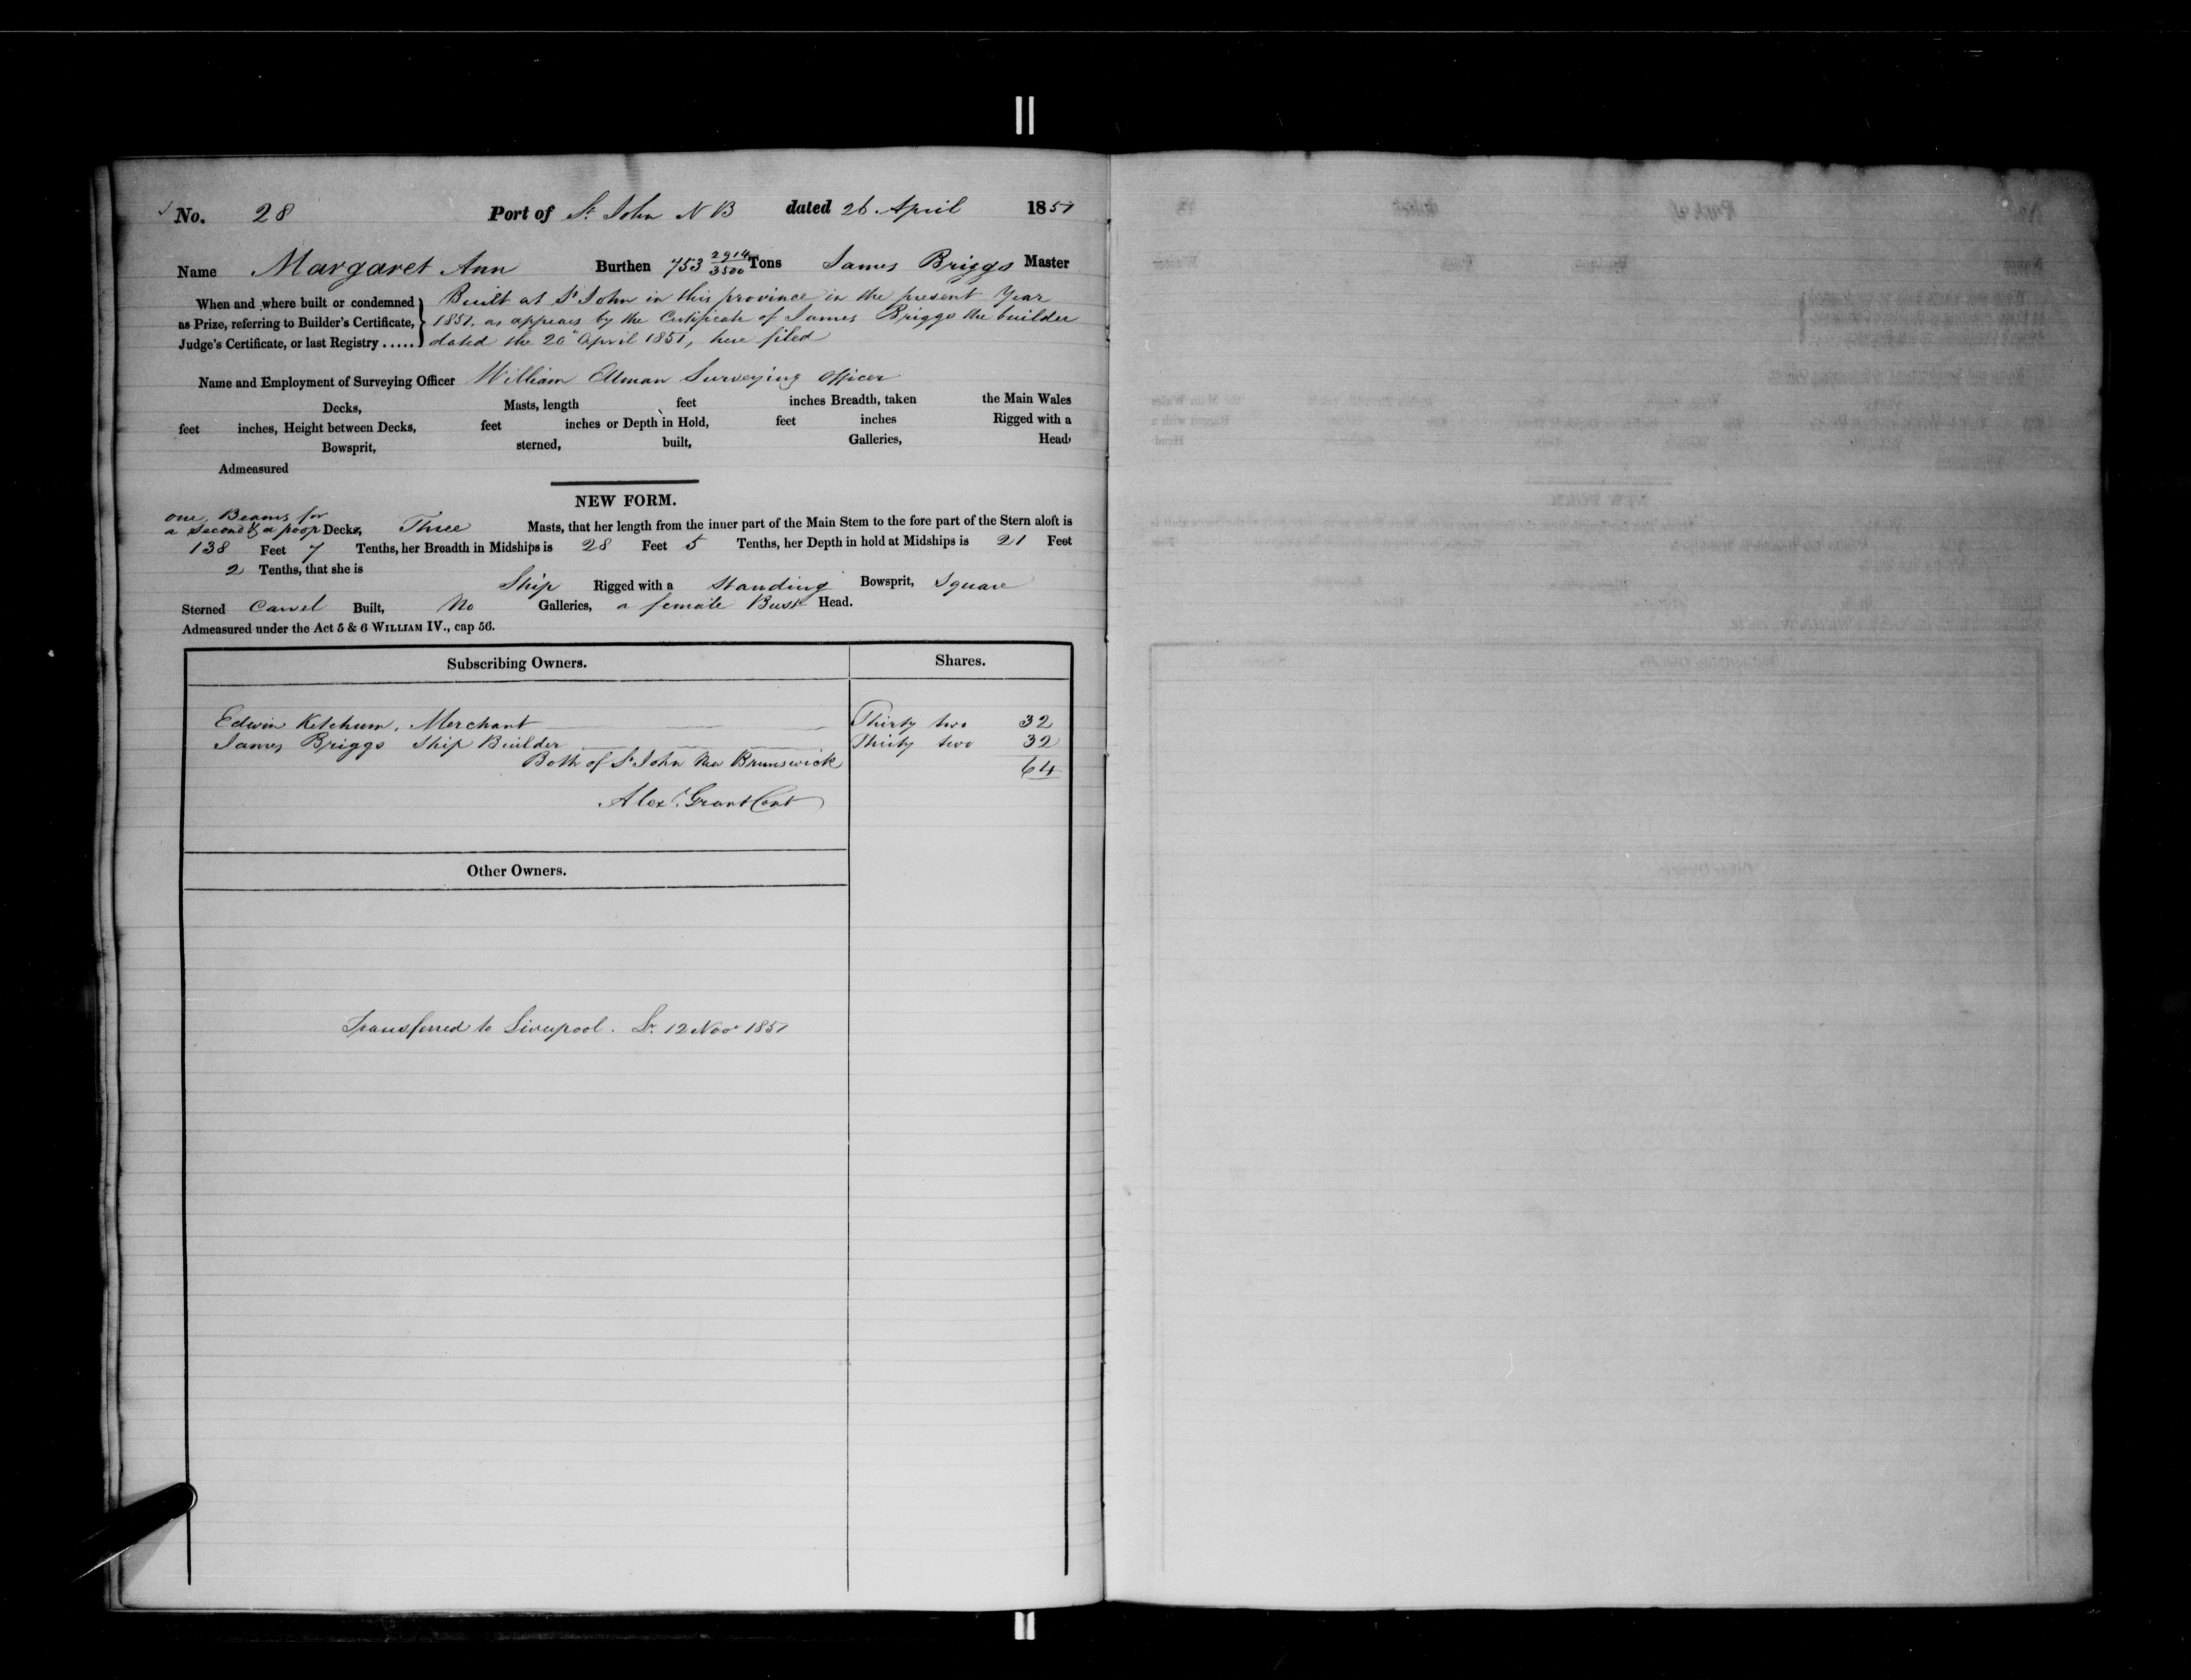 No. 28 Port of St. John N B dated 26 April 1851
Name Margaret Ann Burthen 753 2914/3500 Tons James Briggs Master
When and where built or condemned Built at St John in this province in the present Year
as Prize, referring to Builder's Certificate, 1851, as appears by the Certificate of James Briggs the builder
Judge's Certificate, or last Registry ..... dated the 20 April 1851, here filed
Name and Employment of Surveying Officer William Ellman Surveying Officer
Decks, Masts, length feet inches Breadth, taken the Main Wales
feet inches, Height between Decks, feet inches or Depth in Hold, feet inches Rigged with a
Bowsprit, sterned, built, Galleries, Head
Admeasured
NEW FORM.
one. Beams for
a second & a poop Decks, Three Masts, that her length from the inner part of the Main Stem to the fore part of the Stern aloft is
138 Feet 7 Tenths, her Breadth in Midships is 28 Feet 5 Tenths, her Depth in hold at Midships is 21 Feet
2 Tenths, that she is
Ship Rigged with a Standing Bowsprit, Square
Sterned Carvel Built, No Galleries, a female Bust Head.
Admeasured under the Act 5 & 6 WILLIAM IV., cap 56.
Subscribing Owners. Shares.
Edwin Ketchum, Merchant Thirty two 32
James Briggs Ship Builder Thirty two 32
Both of St John New Brunswick 64
Alexr. Grant Cont
Other Owners.
Transferred to Liverpool. Lr. 12 Novr 1851